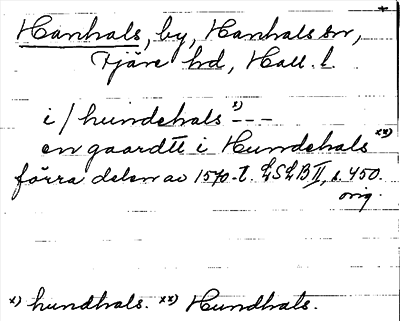 Hanhals, by, Hanhals sn,
Fjäre hd, Hall. l.
i / hundehals x) – – –
en gaardtt i Hundehals xx)
förra delen av 1570-t. LSLB II, s. 450.
orig.
x) hundhals. xx) Hundhals.